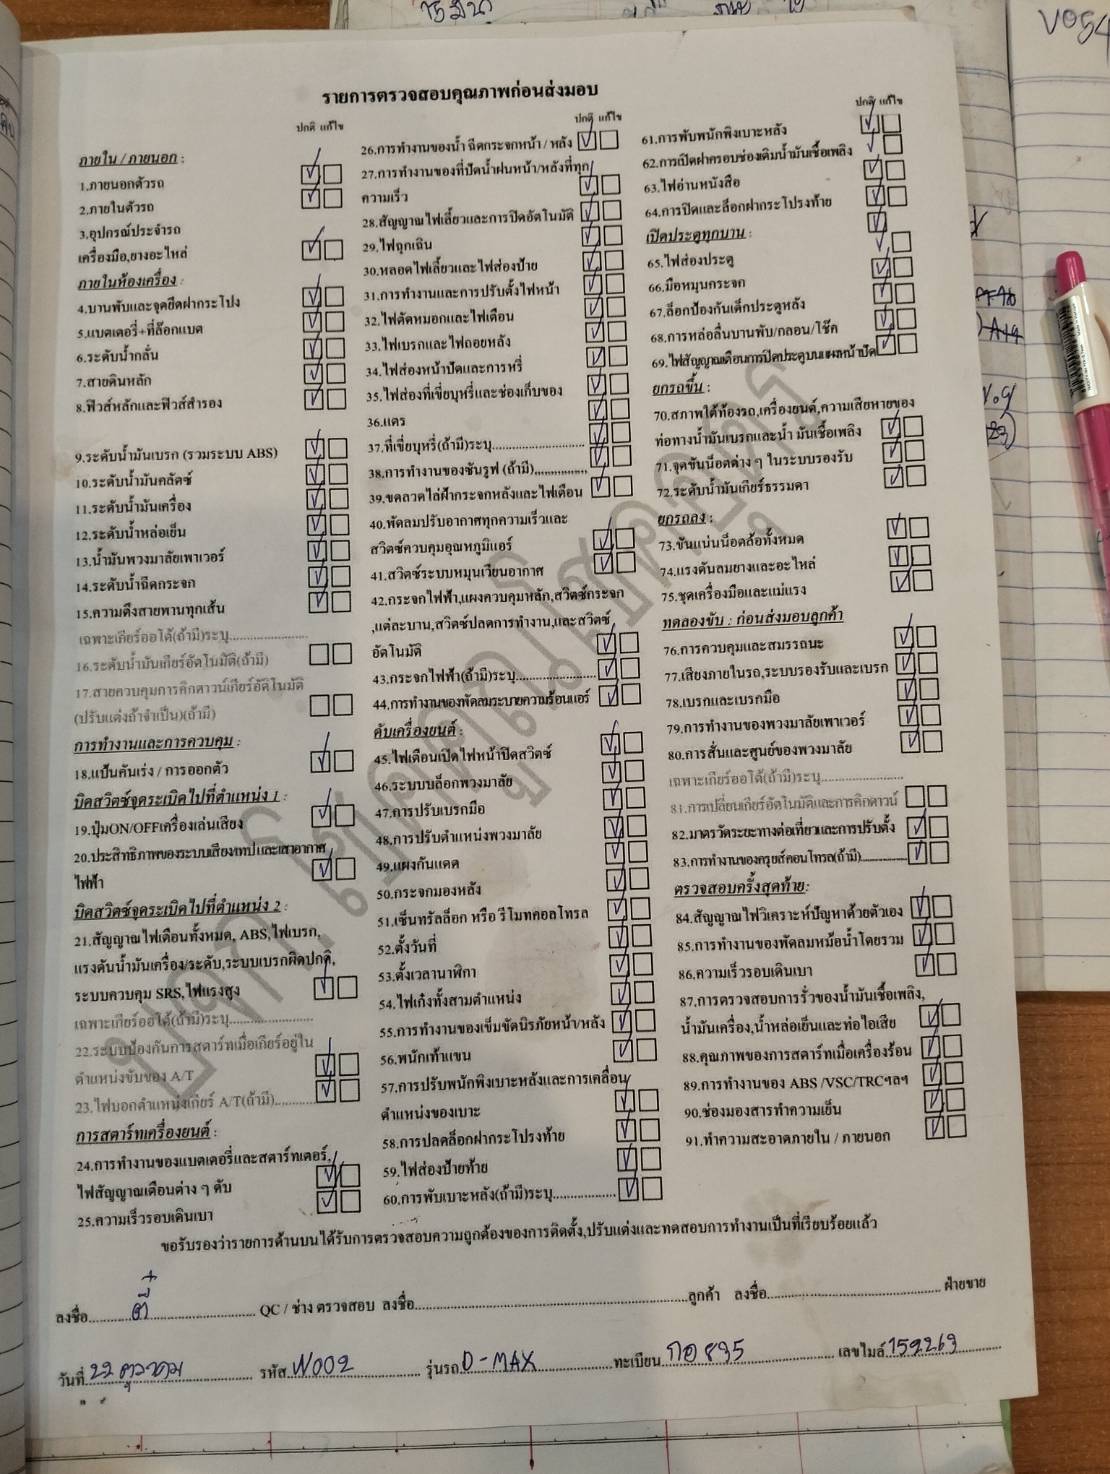 รายการตรวจสอบคุณภาพก่อนส่งมอบ
ปกติ แก้ไข
ภายใน / ภายนอก :
1.ภายนอกตัวรถ
2.ภายในตัวรถ
3.อุปกรณ์ประจำรถ
เครื่องมือ,ยางอะไหล่
ภายในห้องเครื่อง :
4.บานพับและจุดยึดฝากระโปง
5.แบตเตอรี่+ที่ล๊อกแบต
6.ระดับน้ำกลั่น
7.สายดินหลัก
8.ฟิวส์หลักและฟิวส์สำรอง
9.ระดับน้ำมันเบรก (รวมระบบ ABS)
10.ระดับน้ำมันคลัตช์
11.ระดับน้ำมันเครื่อง
12.ระดับน้ำหล่อเย็น
13.น้ำมันพวงมาลัยเพาเวอร์
14.ระดับน้ำฉีดกระจก
15.ความตึงสายพานทุกเส้น
เฉพาะเกียร์ออโต้(ถ้ามี)ระบุ......................
16.ระดับน้ำมันเกียร์อัตโนมัติ(ถ้ามี)
17.สายควบคุมการคิกดาวน์เกียร์อัตโนมัติ
(ปรับแต่งถ้าจำเป็น)(ถ้ามี)
การทำงานและการควบคุม :
18.แป้นคันเร่ง / การออกตัว
บิดสวิตช์จุดระเบิดไปที่ตำแหน่ง 1 :
19.ปุ่มON/OFFเครื่องเล่นเสียง
20.ประสิทธิภาพของระบบเสียงเทปและเสาอากาศ
ไฟฟ้า
บิดสวิตช์จุดระเบิดไปที่ตำแหน่ง 2 :
21.สัญญาณไฟเตือนทั้งหมด, ABS,ไฟเบรก,
แรงดันน้ำมันเครื่อง/ระดับ,ระบบเบรกผิดปกติ,
ระบบควบคุม SRS,ไฟแรงสูง
เฉพาะเกียร์ออโต้(ถ้ามี)ระบุ......................
22.ระบบป้องกันการสตาร์ทเมื่อเกียร์อยู่ใน
ตำแหน่งขับของ A/T
23.ไฟบอกตำแหน่งเกียร์ A/T(ถ้ามี)...........
การสตาร์ทเครื่องยนต์ :
24.การทำงานของแบตเตอรี่และสตาร์ทเตอร์,
ไฟสัญญาณเตือนต่าง ๆ ดับ
25.ความเร็วรอบเดินเบา
ปกติ แก้ไข
26.การทำงานของน้ำ ฉีดกระจกหน้า / หลัง
27.การทำงานของที่ปัดน้ำฝนหน้า/หลังที่ทุก
ความเร็ว
28.สัญญาณไฟเลี้ยวและการปิดอัตโนมัติ
29.ไฟฉุกเฉิน
30.หลอดไฟเลี้ยวและไฟส่องป้าย
31.การทำงานและการปรับตั้งไฟหน้า
32.ไฟตัดหมอกและไฟเตือน
33.ไฟเบรกและไฟถอยหลัง
34.ไฟส่องหน้าปัดและการหรี่
35.ไฟส่องที่เขี่ยบุหรี่และช่องเก็บของ
36.แตร
37.ที่เขี่ยบุหรี่(ถ้ามี)ระบุ..........................
38.การทำงานของซันรูฟ (ถ้ามี)...............
39.ขดลวดไล่ฝ้ากระจกหลังและไฟเตือน
40.พัดลมปรับอากาศทุกความเร็วและ
สวิตช์ควบคุมอุณหภูมิแอร์
41.สวิตช์ระบบหมุนเวียนอากาศ
42.กระจกไฟฟ้า,แผงควบคุมหลัก,สวิตช์กระจก
,แต่ละบาน,สวิตช์ปลดการทำงาน,และสวิตช์
อัตโนมัติ
43.กระจกไฟฟ้า(ถ้ามี)ระบุ.......................
44.การทำงานของพัดลมระบายความร้อนแอร์
ดับเครื่องยนต์ :
45.ไฟเตือนเปิดไฟหน้าปิดสวิตช์
46.ระบบบล็อกพวงมาลัย
47.การปรับเบรกมือ
48.การปรับตำแหน่งพวงมาลัย
49.แผงกันแดด
50.กระจกมองหลัง
51.เซ็นทรัลล็อก หรือ รีโมทคอลโทรล
52.ตั้งวันที่
53.ตั้งเวลานาฬิกา
54.ไฟเก๋งทั้งสามตำแหน่ง
55.การทำงานของเข็มขัดนิรภัยหน้า/หลัง
56.พนักเท้าแขน
57.การปรับพนักพิงเบาะหลังและการเคลื่อน
ตำแหน่งของเบาะ
58.การปลดล็อกฝากระโปรงท้าย
59.ไฟส่องป้ายท้าย
60.การพับเบาะหลัง(ถ้ามี)ระบุ..................
ปกติ แก้ไข
61.การพับพนักพิงเบาะหลัง
62.การเปิดฝาครอบช่องเติมน้ำมันเชื้อเพลิง
63.ไฟอ่านหนังสือ
64.การปิดและล็อกฝากระโปรงท้าย
เปิดประตูทุกบาน :
65.ไฟส่องประตู
66.มือหมุนกระจก
67.ล็อกป้องกันเด็กประตูหลัง
68.การหล่อลื่นบานพับ/กลอน/โช๊ค
69.ไฟสัญญาณเตือนการปิดประตูบนแผงหน้าปัด
ยกรถขึ้น :
70.สภาพใต้ท้องรถ,เครื่องยนต์,ความเสียหายของ
ท่อทางน้ำมันเบรกและน้ำ มันเชื้อเพลิง
71.จุดขันน็อตต่าง ๆ ในระบบรองรับ
72.ระดับน้ำมันเกียร์ธรรมดา
ยกรถลง :
73.ขันแน่นน็อตล้อทั้งหมด
74.แรงดันลมยางและอะไหล่
75.ชุดเครื่องมือและแม่แรง
ทดลองขับ : ก่อนส่งมอบลูกค้า
76.การควบคุมและสมรรถนะ
77.เสียงภายในรถ,ระบบรองรับและเบรก
78.เบรกและเบรกมือ
79.การทำงานของพวงมาลัยเพาเวอร์
80.การสั่นและศูนย์ของพวงมาลัย
เฉพาะเกียร์ออโต้(ถ้ามี)ระบุ......................
81.การเปลี่ยนเกียร์อัตโนมัติและการคิกดาวน์
82.มาตรวัดระยะทางต่อเที่ยวและการปรับตั้ง
83.การทำงานของครุยส์คอนโทรล(ถ้ามี)...............
ตรวจสอบครั้งสุดท้าย:
84.สัญญาณไฟวิเคราะห์ปัญหาด้วยตัวเอง
85.การทำงานของพัดลมหม้อน้ำโดยรวม
86.ความเร็วรอบเดินเบา
87.การตรวจสอบการรั่วของน้ำมันเชื้อเพลิง,
น้ำมันเครื่อง,น้ำหล่อเย็นและท่อไอเสีย
88.คุณภาพของการสตาร์ทเมื่อเครื่องร้อน
89.การทำงานของ ABS /VSC/TRCฯลฯ
90.ช่องมองสารทำความเย็น
91.ทำความสะอาดภายใน / ภายนอก
ขอรับรองว่ารายการด้านบนได้รับการตรวจสอบความถูกต้องของการติดตั้ง,ปรับแต่งและทดสอบการทำงานเป็นที่เรียบร้อยแล้ว
ลงชื่อ......ตี๋......QC / ช่าง ตรวจสอบ ลงชื่อ..................ลูกค้า ลงชื่อ..................ฝ่ายขาย
วันที่ 22 ตุลาคม รหัส W002 รุ่นรถ D-MAX ทะเบียน กอ 835 เลขไมล์ 159269